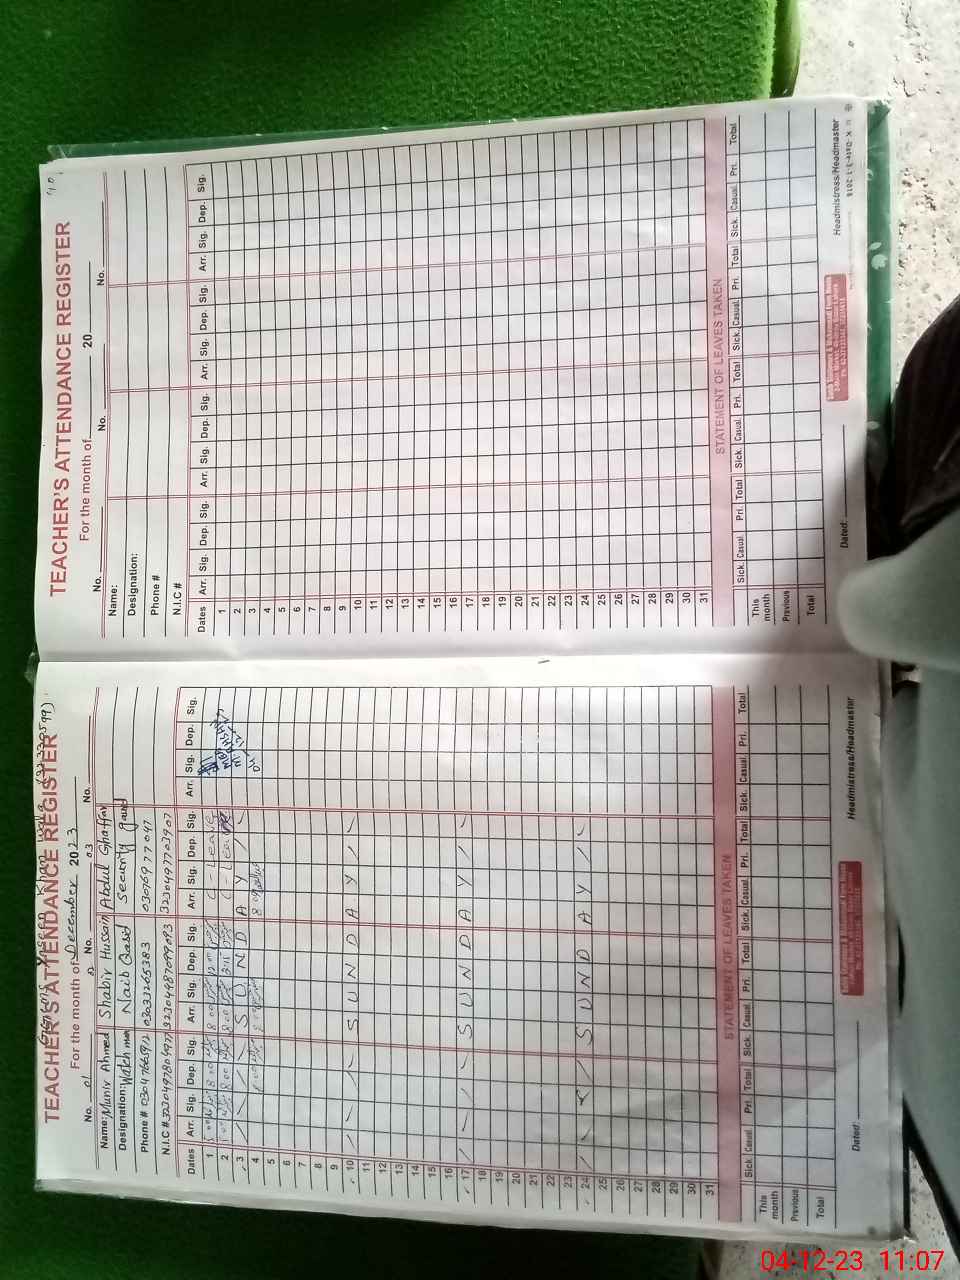 TEACHER'S ATTENDANCE REGISTER
For the month of December 2023
No. 01 No. 02 No. 03 No.
Name: Munir Ahmed Shabir Hussain Abdul Ghaffar
Designation: Watch man Naib Qasd security gaurd
Phone # 03047665912 03033265383 03076977047
N.I.C #
Dates Arr. Sig. Dep. Sig. Arr. Sig. Dep. Sig. Arr. Sig. Dep. Sig. Arr. Sig. Dep. Sig.
1 8 00 8 00 8 00 12 00 C - Leave
2 8 00 8 00 8 00 C - Leave
3 SUNDAY
4 8 00
5
6
7
8
9
10 SUNDAY
11
12
13
14
15
16
17 SUNDAY
18
19
20
21
22
23
24 SUNDAY
25
26
27
28
29
30
31
STATEMENT OF LEAVES TAKEN
Sick Casual Pri. Total Sick. Casual Pri. Total Sick. Casual Pri. Total Sick. Casual Pri. Total
This month
Previous
Total
Dated: Headmistress/Headmaster
TEACHER'S ATTENDANCE REGISTER
For the month of 20
No. No. No.
Name:
Designation:
Phone #
N.I.C #
Dates Arr. Sig. Dep. Sig. Arr. Sig. Dep. Sig. Arr. Sig. Dep. Sig. Arr. Sig. Dep. Sig.
1
2
3
4
5
6
7
8
9
10
11
12
13
14
15
16
17
18
19
20
21
22
23
24
25
26
27
28
29
30
31
STATEMENT OF LEAVES TAKEN
Sick. Casual Pri. Total Sick. Casual Pri. Total Sick. Casual Pri. Total Sick. Casual Pri. Total
This month
Previous
Total
Dated: Headmistress/Headmaster
04-12-23 11:07